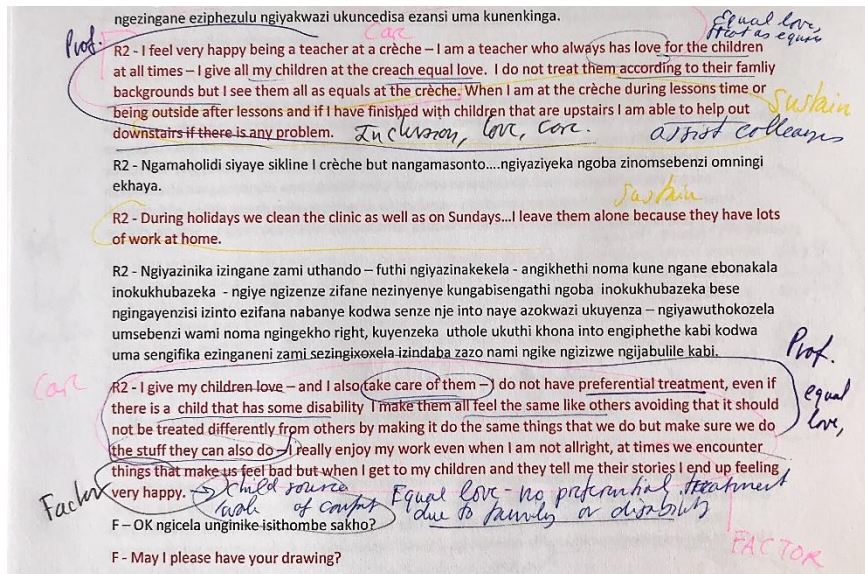 ngezingane eziphezulu ngiyakwazi ukuncedisa ezansi uma kunenkinga.
Care
Equal love,
treat as equals
Prof.
R2 - I feel very happy being a teacher at a crèche – I am a teacher who always has love for the children
at all times – I give all my children at the creach equal love.  I do not treat them according to their famliy
backgrounds but I see them all as equals at the crèche. When I am at the crèche during lessons time or
being outside after lessons and if I have finished with children that are upstairs I am able to help out
Sustain
downstairs if there is any problem.
Inclusion, love, care.
assist colleagues
R2 - Ngamaholidi siyaye sikline I crèche but nangamasonto....ngiyaziyeka ngoba zinomsebenzi omningi
ekhaya.
Sustain
R2 - During holidays we clean the clinic as well as on Sundays...I leave them alone because they have lots
of work at home.
R2 - Ngiyazinika izingane zami uthando – futhi ngiyazinakekela - angikhethi noma kune ngane ebonakala
inokukhubazeka  - ngiye ngizenze zifane nezinyenye kungabisengathi ngoba  inokukhubazeka bese
ngingayenzisi izinto ezifana nabanye kodwa senze nje into naye azokwazi ukuyenza – ngiyawuthokozela
umsebenzi wami noma ngingekho right, kuyenzeka  uthole ukuthi khona into engiphethe kabi kodwa
uma sengifika ezinganeni zami sezingixoxela izindaba zazo nami ngike ngizizwe ngijabulile kabi.
Prof.
equal
love,
Care
R2 - I give my children love – and I also take care of them – I do not have preferential treatment, even if
there is a  child that has some disability  I make them all feel the same like others avoiding that it should
not be treated differently from others by making it do the same things that we do but make sure we do
the stuff they can also do – I really enjoy my work even when I am not allright, at times we encounter
things that make us feel bad but when I get to my children and they tell me their stories I end up feeling
very happy.
Factor
Child source
of comfort
Equal love - no preferential treatment
due to family or disability
F – OK ngicela unginike isithombe sakho?
FACTOR
F - May I please have your drawing?